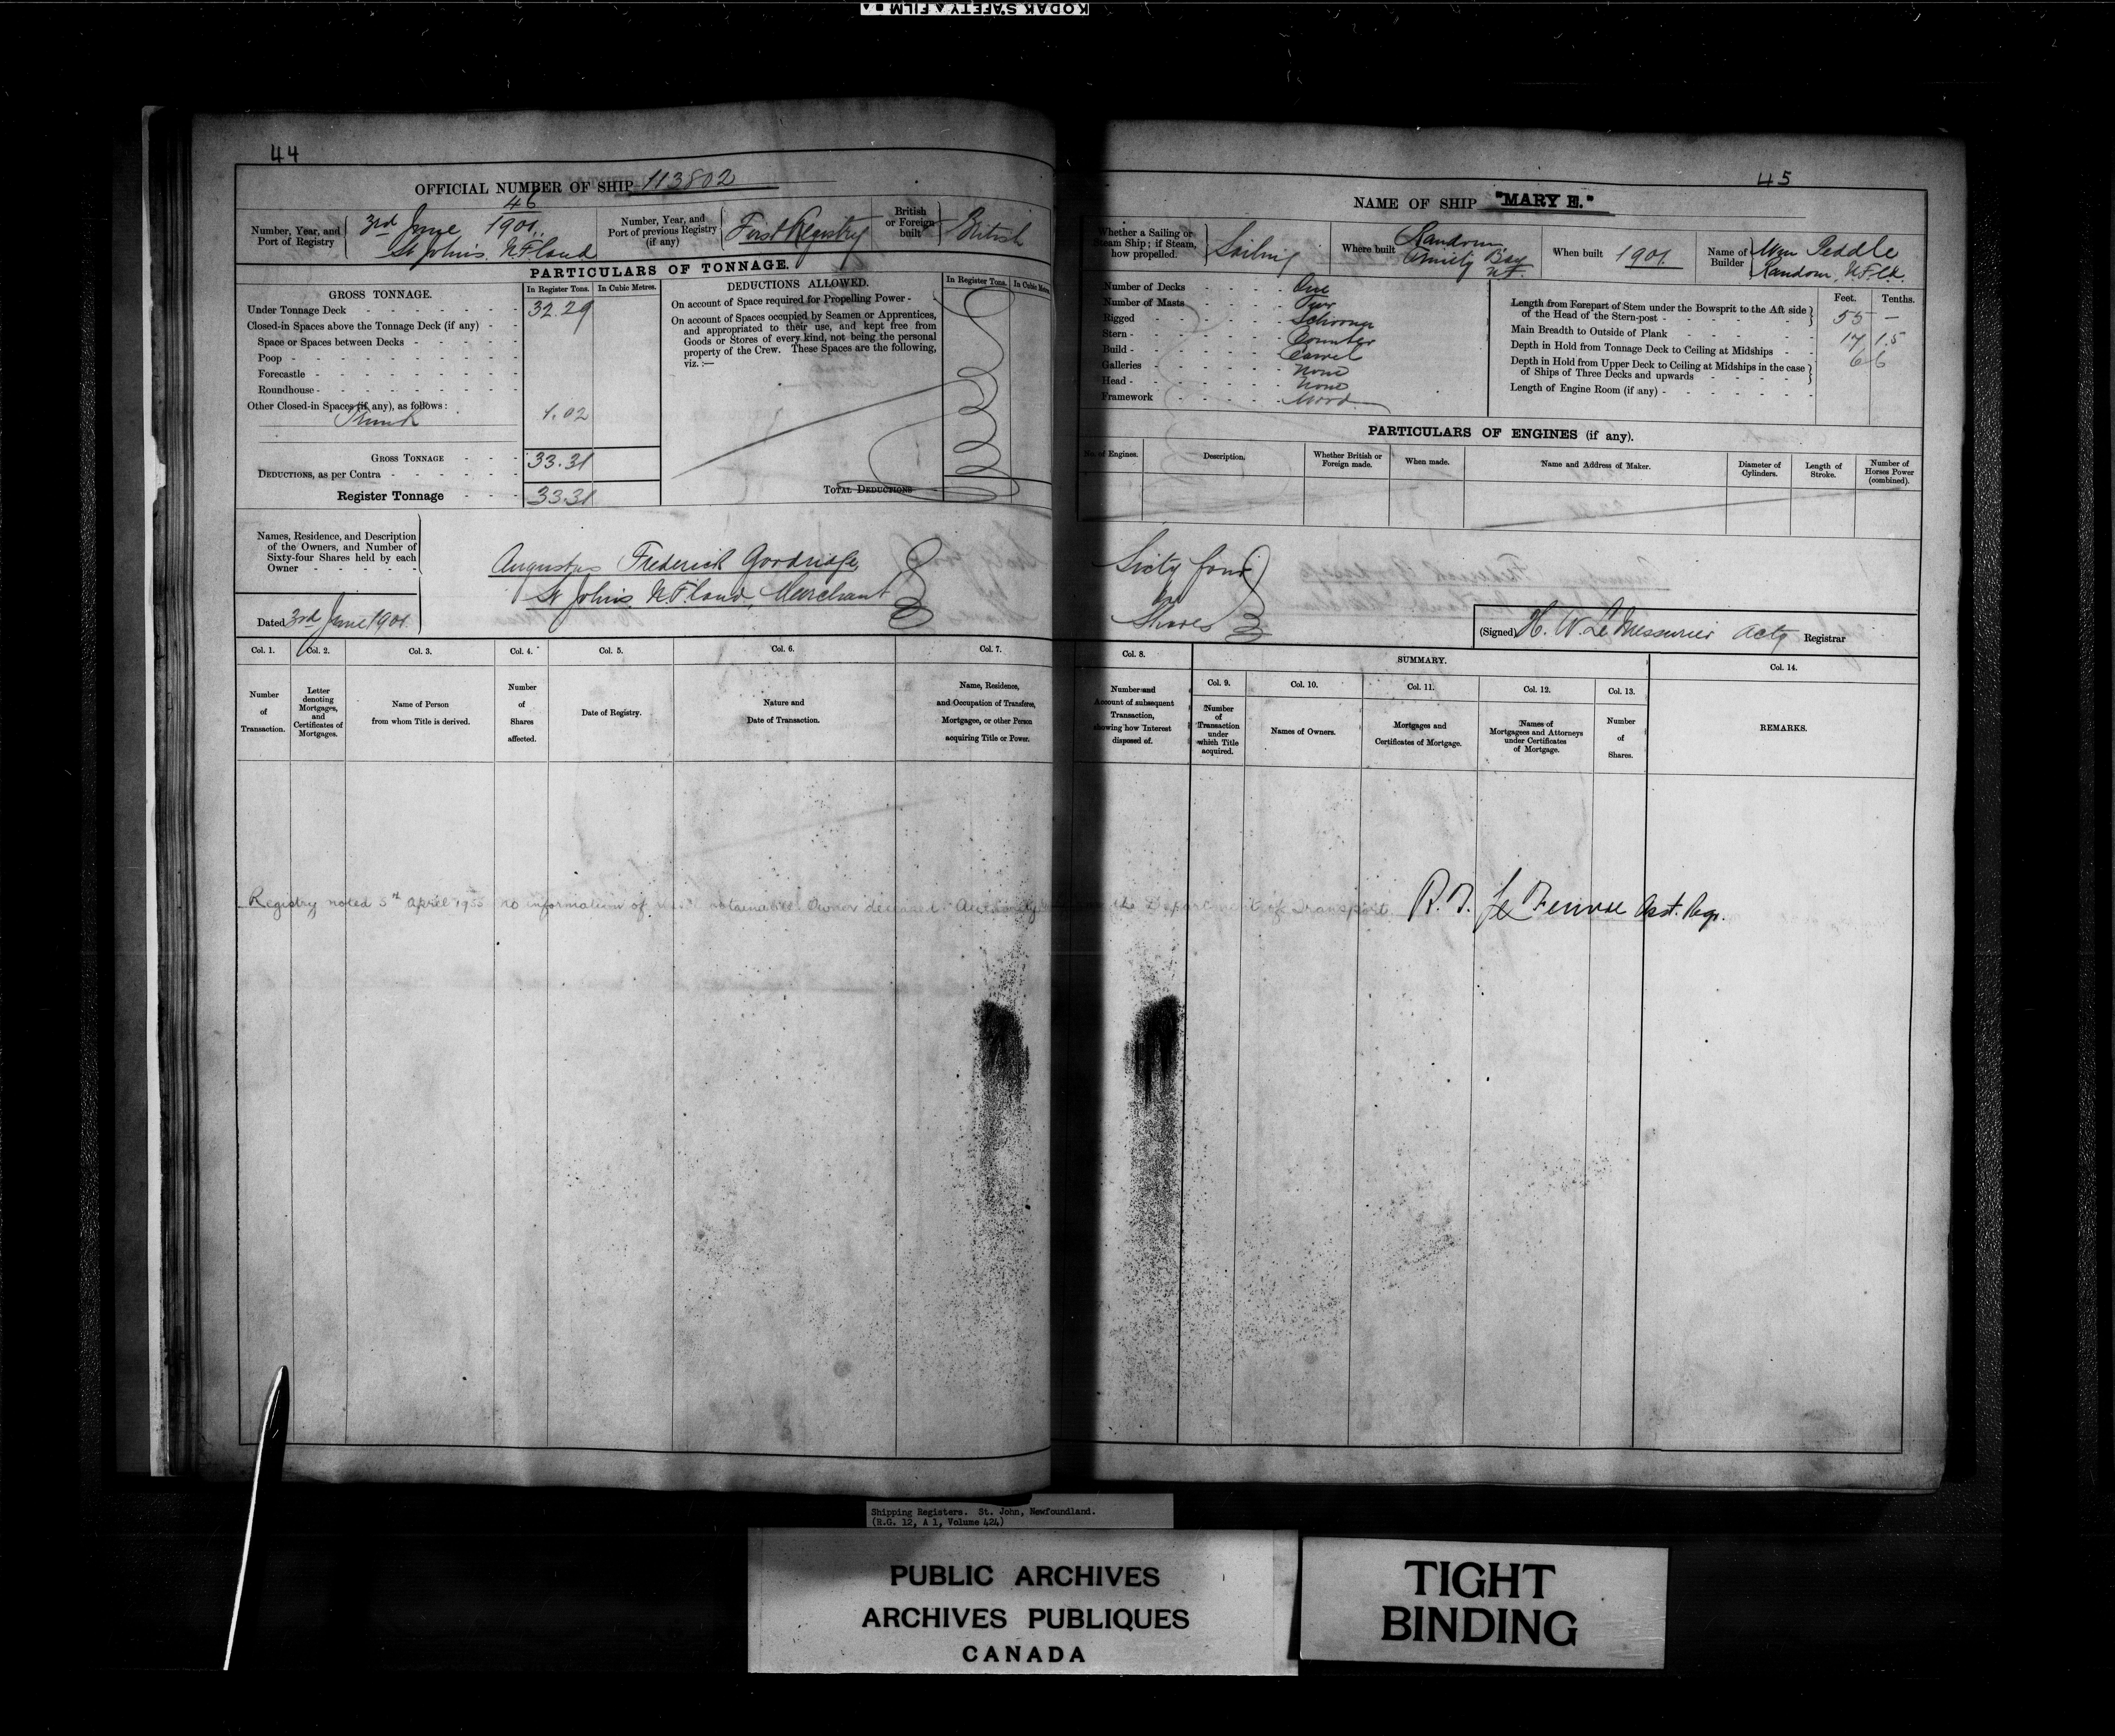 KODAK SAFETY FILM
44
OFFICIAL NUMBER OF SHIP 113802
Number, Year, and Port of Registry
46
3rd June 1901.
St Johns. NFland
Number, Year, and Port of previous Registry (if any)
First Registry
British or Foreign built
British
PARTICULARS OF TONNAGE.
GROSS TONNAGE.
In Register Tons. In Cubic Metres.
Under Tonnage Deck 32.29
Closed-in Spaces above the Tonnage Deck (if any)
Space or Spaces between Decks
Poop
Forecastle
Roundhouse
Other Closed-in Spaces (if any), as follows:
Trunk 1.02
GROSS TONNAGE 33.31
DEDUCTIONS, as per Contra
Register Tonnage 33.31
DEDUCTIONS ALLOWED.
In Register Tons. In Cubic Metres
On account of Space required for Propelling Power
On account of Spaces occupied by Seamen or Apprentices,
and appropriated to their use, and kept free from
Goods or Stores of every kind, not being the personal
property of the Crew. These Spaces are the following,
viz. :—
TOTAL DEDUCTIONS
Names, Residence, and Description
of the Owners, and Number of
Sixty-four Shares held by each
Owner
Dated 3rd June 1901
Augustus Frederick Goodridge
St Johns. NFland, Merchant
Col. 1. Col. 2. Col. 3. Col. 4. Col. 5. Col. 6. Col. 7.
Number of Transaction.
Letter denoting Mortgages, and Certificates of Mortgages.
Name of Person from whom Title is derived.
Number of Shares affected.
Date of Registry.
Nature and Date of Transaction.
Name, Residence, and Occupation of Transferee, Mortgagee, or other Person acquiring Title or Power.
Registry noted 5th April 1955 no information of obtainable Owner deceased. Authority
45
NAME OF SHIP "MARY E."
Whether a Sailing or
Steam Ship; if Steam,
how propelled.
Sailing
Where built
Random
Trinity Bay
NF.
When built 1901.
Name of Builder
Wm Peddle
Random, NFld.
Number of Decks One
Number of Masts Two
Rigged Schooner
Stern Counter
Build Carvel
Galleries None
Head None
Framework Wood
Feet. Tenths.
Length from Forepart of Stem under the Bowsprit to the Aft side
of the Head of the Stern-post 55 —
Main Breadth to Outside of Plank 17 1.5
Depth in Hold from Tonnage Deck to Ceiling at Midships 6 6
Depth in Hold from Upper Deck to Ceiling at Midships in the case
of Ships of Three Decks and upwards
Length of Engine Room (if any)
PARTICULARS OF ENGINES (if any).
No. of Engines.
Description.
Whether British or Foreign made.
When made.
Name and Address of Maker.
Diameter of Cylinders.
Length of Stroke.
Number of Horses Power (combined).
Sixty four
Shares
(Signed) H. W. LeMessurier Actg Registrar
Col. 8.
SUMMARY.
Col. 9. Col. 10. Col. 11. Col. 12. Col. 13. Col. 14.
Number and Account of subsequent Transaction, showing how Interest disposed of.
Number of Transaction under which Title acquired.
Names of Owners.
Mortgages and Certificates of Mortgage.
Names of Mortgagees and Attorneys under Certificates of Mortgage.
Number of Shares.
REMARKS.
the Department of Transport
Asst. Regr.
Shipping Registers. St. John, Newfoundland.
(R.G. 12, A 1, Volume 424)
PUBLIC ARCHIVES
ARCHIVES PUBLIQUES
CANADA
TIGHT
BINDING